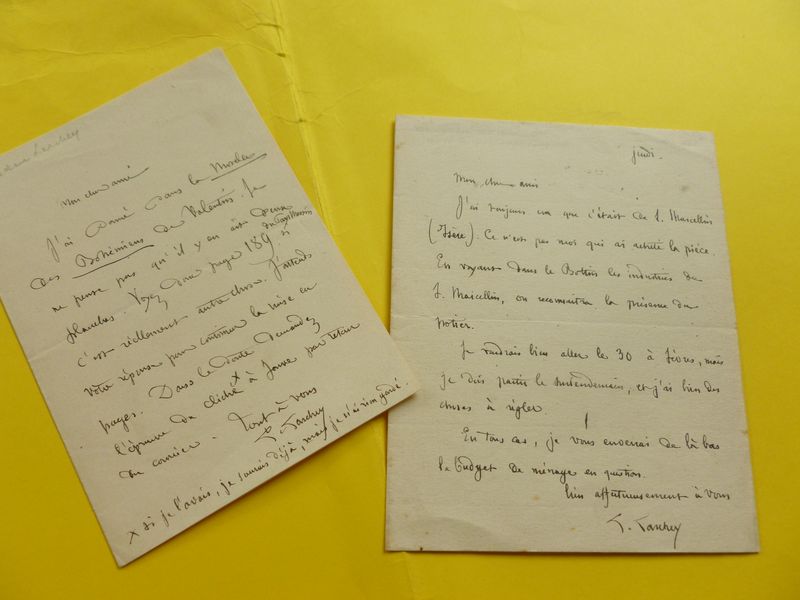 Mon cher ami
J'ai donné dans le Musée
des Bohémiens de Valentin. Je
ne pense pas qu'il y en ait deux
planches. Voyez donc page 189 si
c'est réellement autre chose. J'attends
votre réponse pour continuer la mise en
pages. Dans le doute demandez
l'épreuve du cliché x à Jouve par retour
du courrier. Tout à vous
L. Larchey
x si je l'avais, je saurais déjà, mais je n'ai rien gardé.
jeudi.
Mon cher ami
J'ai toujours cru que c'était de S. Marcellin
(Isère). Ce n'est pas moi qui ai acheté la pièce.
En voyant dans le Bottin les industries de
S. Marcellin, on reconnaîtra la présence du
potier.
Je voudrais bien aller le 30 à Sèvres, mais
je dois partir le surlendemain, et j'ai bien des
choses à régler.
En tous cas, je vous enverrai de là bas
le budget de ménage en question.
bien affectueusement à vous
L. Larchey